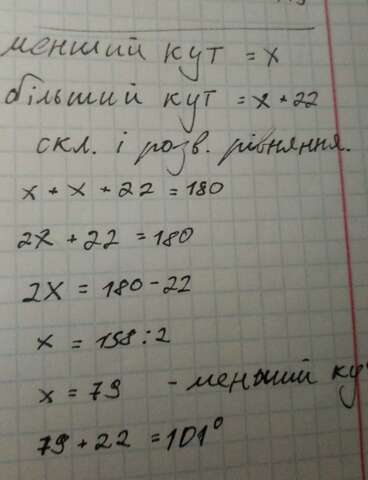 менший кут = х
більший кут = х + 22
скл. і розв. рівняння.
х + х + 22 = 180
2х + 22 = 180
2х = 180 - 22
х = 158 : 2
х = 79 - менший ку
79 + 22 = 101°